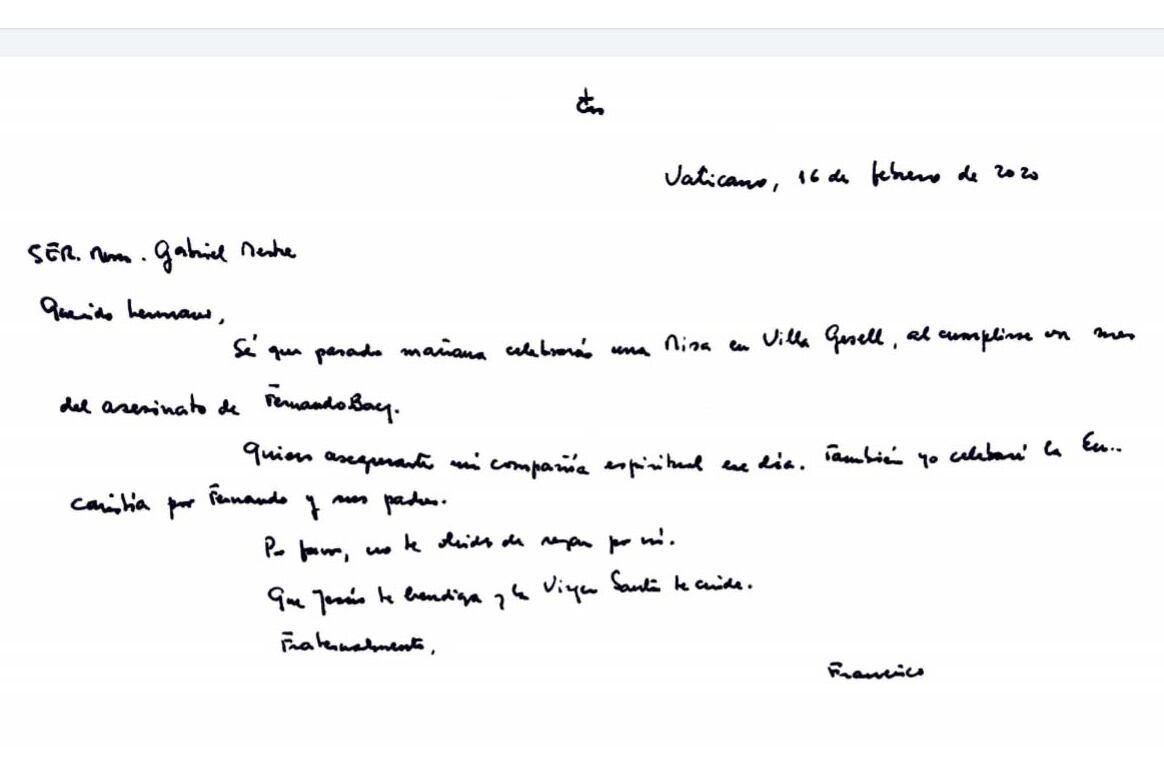 Vaticano, 16 de febrero de 2020
SER. Mons. Gabriel Mestre
Querido hermano,
Sé que pasado mañana celebrarás una Misa en Villa Gesell, al cumplirse un mes
del asesinato de Fernando Baez.
Quiero asegurarte mi compañía espiritual ese día. También yo celebraré la Eu..
caristía por Fernando y sus padres.
Por favor, no te olvides de rezar por mí.
Que Jesús te bendiga y la Virgen Santa te cuide.
Fraternalmente,
Francisco